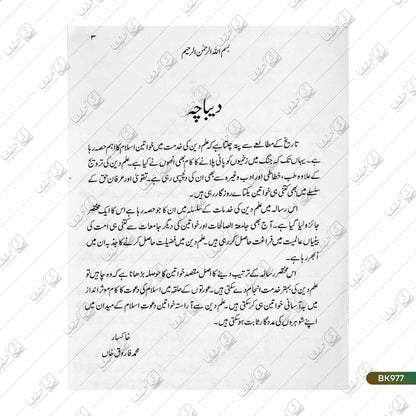 ۳
بسم اللہ الرحمٰن الرحیم
دیباچہ
تاریخ کے مطالعے سے پتہ چلتا ہے کہ علم دین کی خدمت میں خواتین اسلام کا اہم حصہ رہا
ہے۔ یہاں تک کہ جنگ میں زخمیوں کو پانی پلانے کا کام بھی انھوں نے کیا ہے۔ علم دین کی ترویج
کے علاوہ طب، خطاطی اور ادب وغیرہ سے بھی ان کی دلچسپی رہی ہے۔ تقویٰ اور عرفان حق کے
سلسلے میں بھی کتنی ہی خواتین یکتائے روزگار رہی ہیں۔
اس رسالہ میں علم دین کی خدمات کے سلسلہ میں ان کا جو حصہ رہا ہے اس کا ایک مختصر
جائزہ لیا گیا ہے۔ آج بھی جامعۃ الصالحات اور خواتین کی دیگر جامعات سے کتنی ہی امت کی
بیٹیاں عالمیت میں فراغت حاصل کر رہی ہیں۔ علم دین میں فضیلت حاصل کرنے کا جذبہ ان میں
ابھر رہا ہے۔
اس مختصر رسالہ کے ترتیب دینے کا اصل مقصد خواتین کا حوصلہ بڑھانا ہے کہ وہ چاہیں تو
علم دین کی بہتر خدمت انجام دے سکتی ہیں۔ عورتوں کے حلقہ میں اسلام کی دعوت کا کام موثر انداز
میں بہ آسانی خواتین ہی کر سکتی ہیں۔ علم دین سے آراستہ خواتین دعوت اسلام کے میدان میں
اپنے شوہروں کی مددگار ثابت ہو سکتی ہیں۔
خاکسار
محمد فاروق خاں
BK977